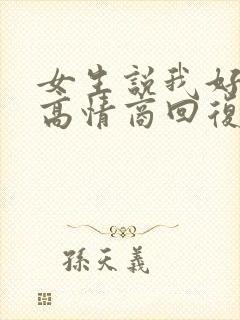 女生説我好
高情商回復
孫天義